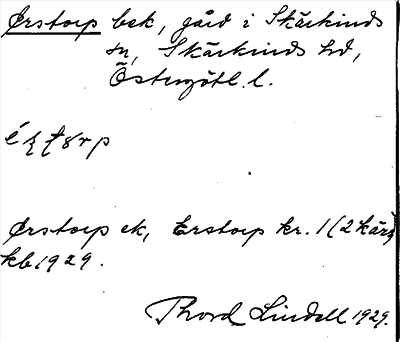 Ørstorp bek, gård i Skärkinds
sn, Skärkinds hd,
Östergötl. l.
Ørstorp ek, Erstorp kr. 1 (2 kärs)
kb 1929.
Thord Lindell 1929.